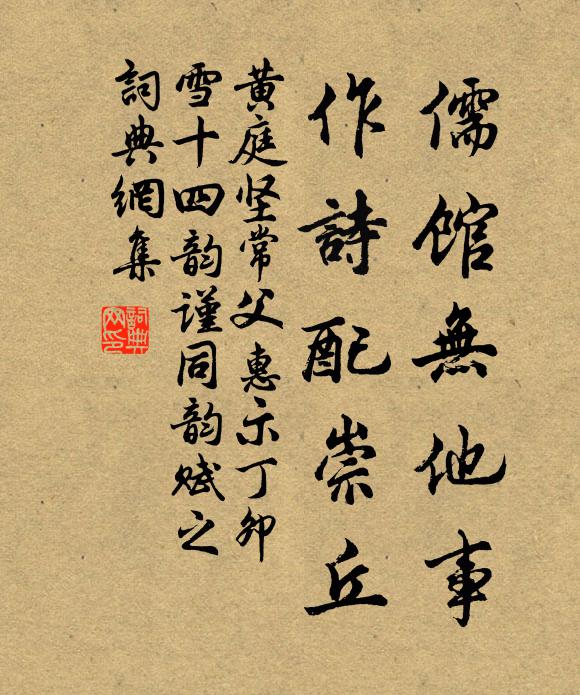 儒館無他事
作詩配崇丘
黄庭坚常父惠示丁卯
雪十四韵謹同韵赋之
詞典網集
詞典网印